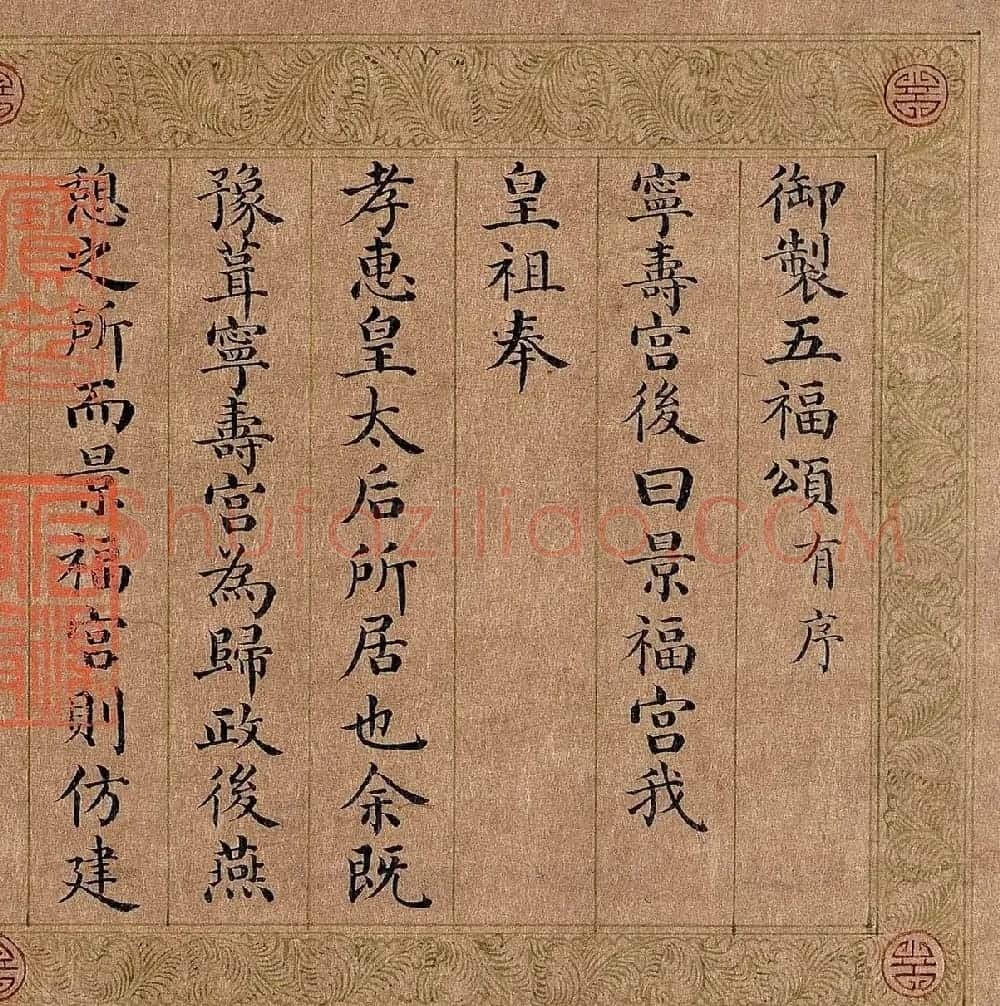 御製五福頌有序
寧壽宮後曰景福宮我
皇祖奉
孝惠皇太后所居也余既
豫葺寧壽宮為歸政後燕
憩之所而景福宮則仿建
shufaziliao.COM